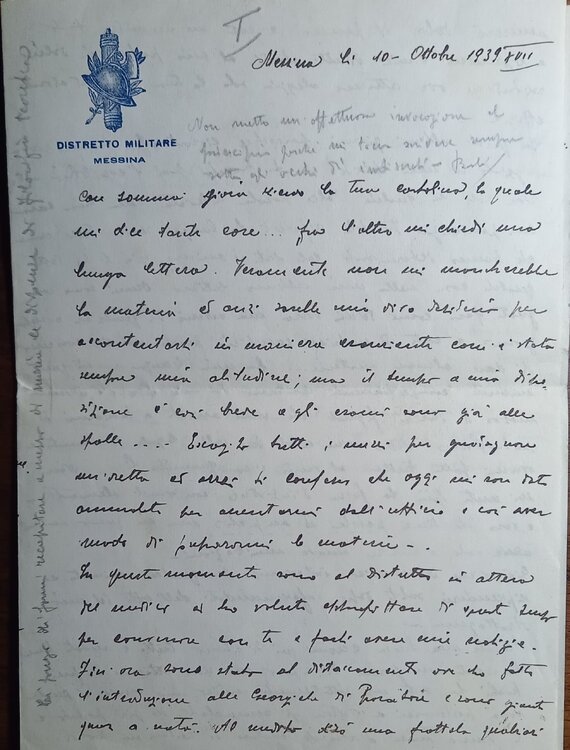 I
Messina li 10 - Ottobre 1939 XVII
DISTRETTO MILITARE
MESSINA
Non metto un'affettuosa invocazione al
principio perché mi scrivere sempre
sotto gli occhi di
Con somma gioia ricevo la tua cartolina, la quale
mi dice tante cose... fra l'altro mi chiedi una
lunga lettera. Veramente non mi mancherebbe
la materia ed anzi sarebbe mio vivo desiderio per
accontentarti in maniera esauriente com'è stata
sempre mia abitudine; ma il tempo a mia dispo-
sizione è così breve e gli esami sono già alle
spalle.... Escogito tutti i mezzi per guadagnare
un'oretta ed anzi ti confesso che oggi mi son dato
ammalato per assentarmi dall'ufficio e così aver
modo di prepararmi le materie -.
In questo momento sono al distretto in attesa
del medico ed ho voluto approfittare di questo tempo
per conversare con te e farti avere mie notizie.
Fin'ora sono stato al distaccamento ove ho fatto
l'introduzione alle Georgiche di e sono giunto
quasi a metà. Al medico dirò una frottola qualsiasi